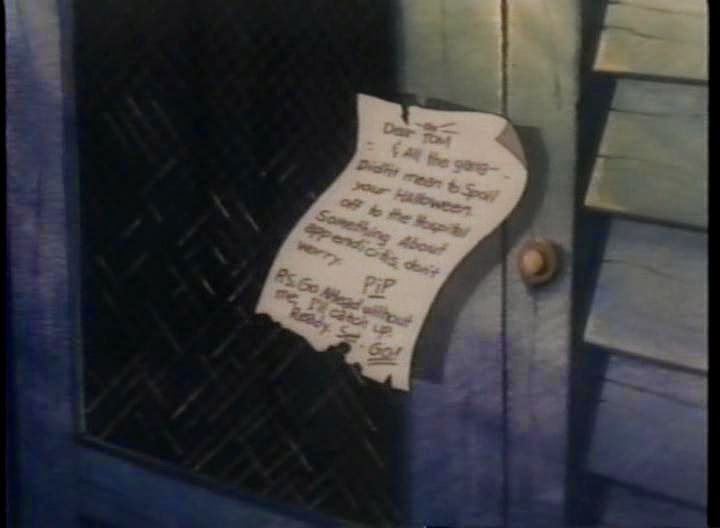 Dear Tom
& All the gang—
Didn't mean to Spoil
your Halloween.
off to the Hospital
Something About
apprendicitis, don't
worry.
PiP
P.S. Go Ahead without
me, I'll catch up.
Ready. Set. Go!